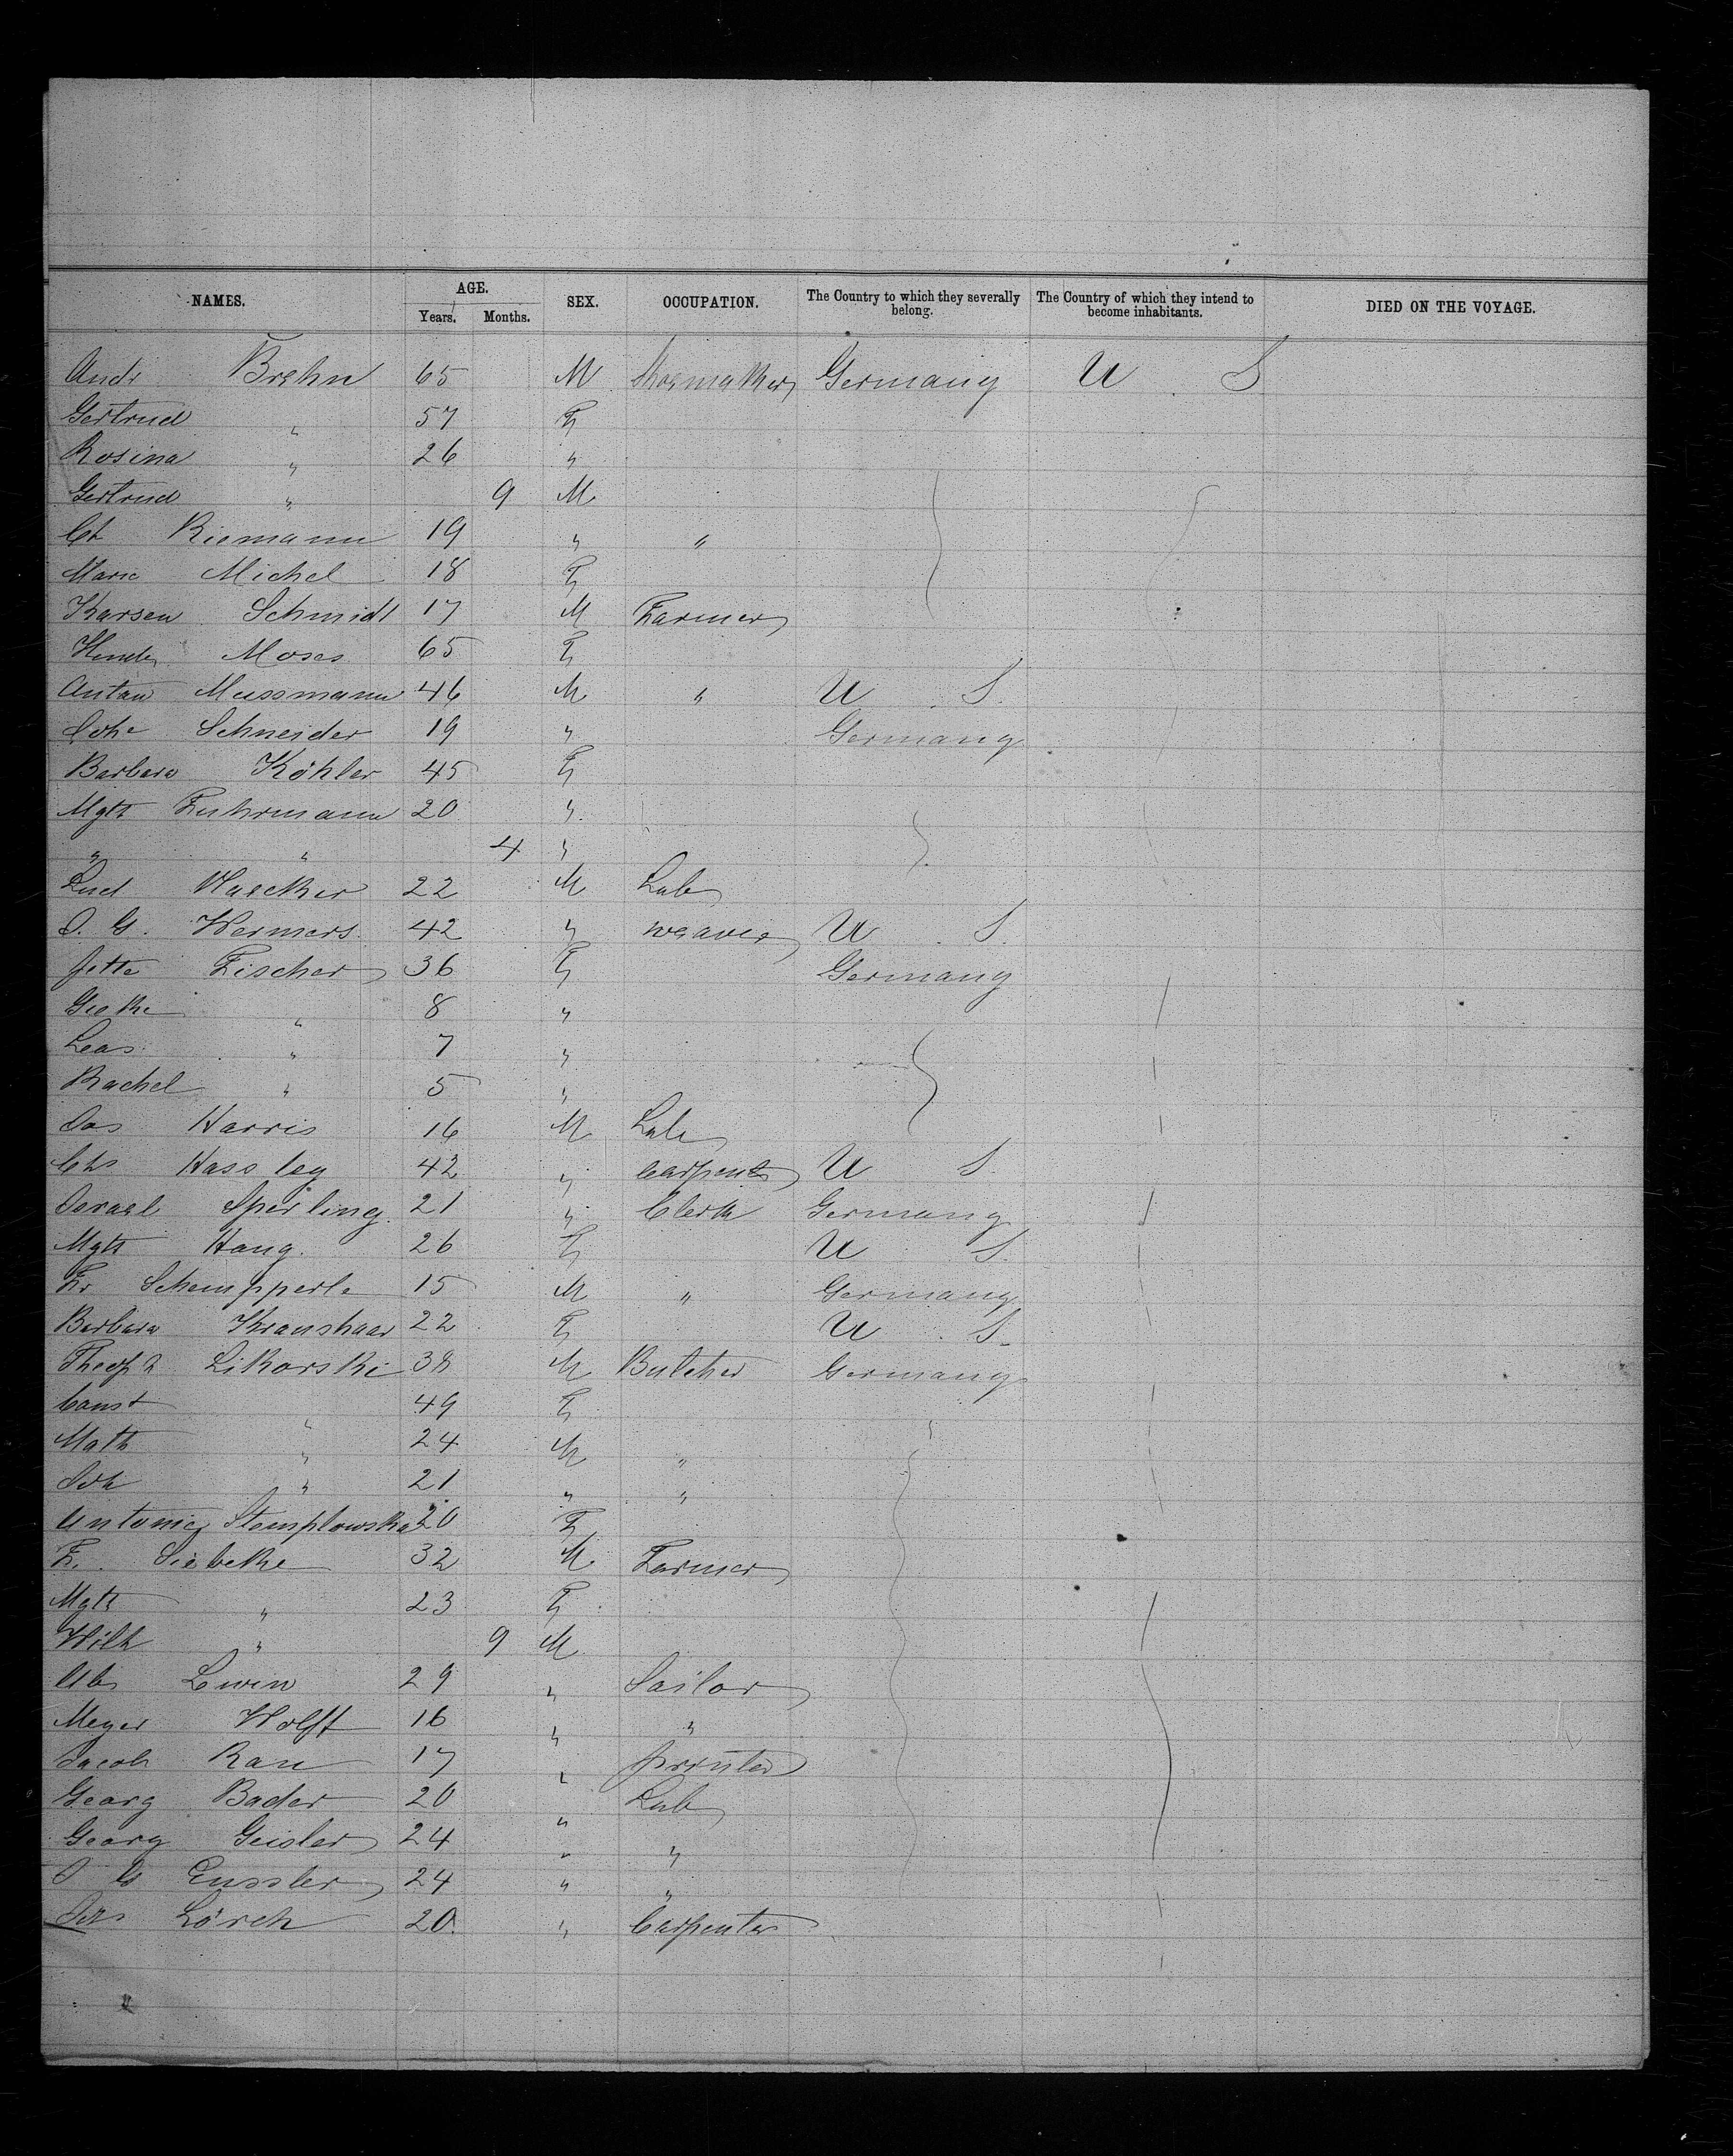 NAMES. AGE. SEX. OCCUPATION. The Country to which they severally belong. The Country of which they intend to become inhabitants. DIED ON THE VOYAGE.
Years. Months.
Andr Brehn 65 M Shoemaker Germany U S
Gertrud " 57 F
Rosina " 26 "
Gertrud " 9 M
Ch Riemann 19 " "
Marie Michel 18 F
Karsen Schmidt 17 M Farmer
Moses 65 F
Anton Mussmann 46 M " U S
Johe Schneider 19 " Germany
Barbara Köhler 45 F
Mgtt Fuhrmann 20 "
" " 4 "
Lud Haecker 22 M Lab
J. G. Wermers 42 " weaver U S
Jette Fischer 36 F Germany
" 8 "
Leas " 7 "
Rachel " 5 "
Jos Harris 16 M Lab
Chs Hassley 42 " Carpenter U S
Israel Sperling. 21 " Clerk Germany
Mgtt Haug. 26 F U S
Fr Schempperle 15 M " Germany
Barbara Kranshaar 22 F U S
Theoph Likorski 38 M Butcher Germany
Const " 49 F "
Math " 24 M "
Joh " 21 " "
Antonie Stemplowska 20 F
F. Siebeke 32 M Farmer
Mgtt " 23 F
Wilh " 9 M
Ab Lewin 29 " Sailor
Meyer Wolff 16 " "
Jacob Rau 17 " printer
Georg Bader 20 " Lab
Georg Geisler 24 " "
J G Eussler 24 " "
Jos Lörch 20. " Carpenter